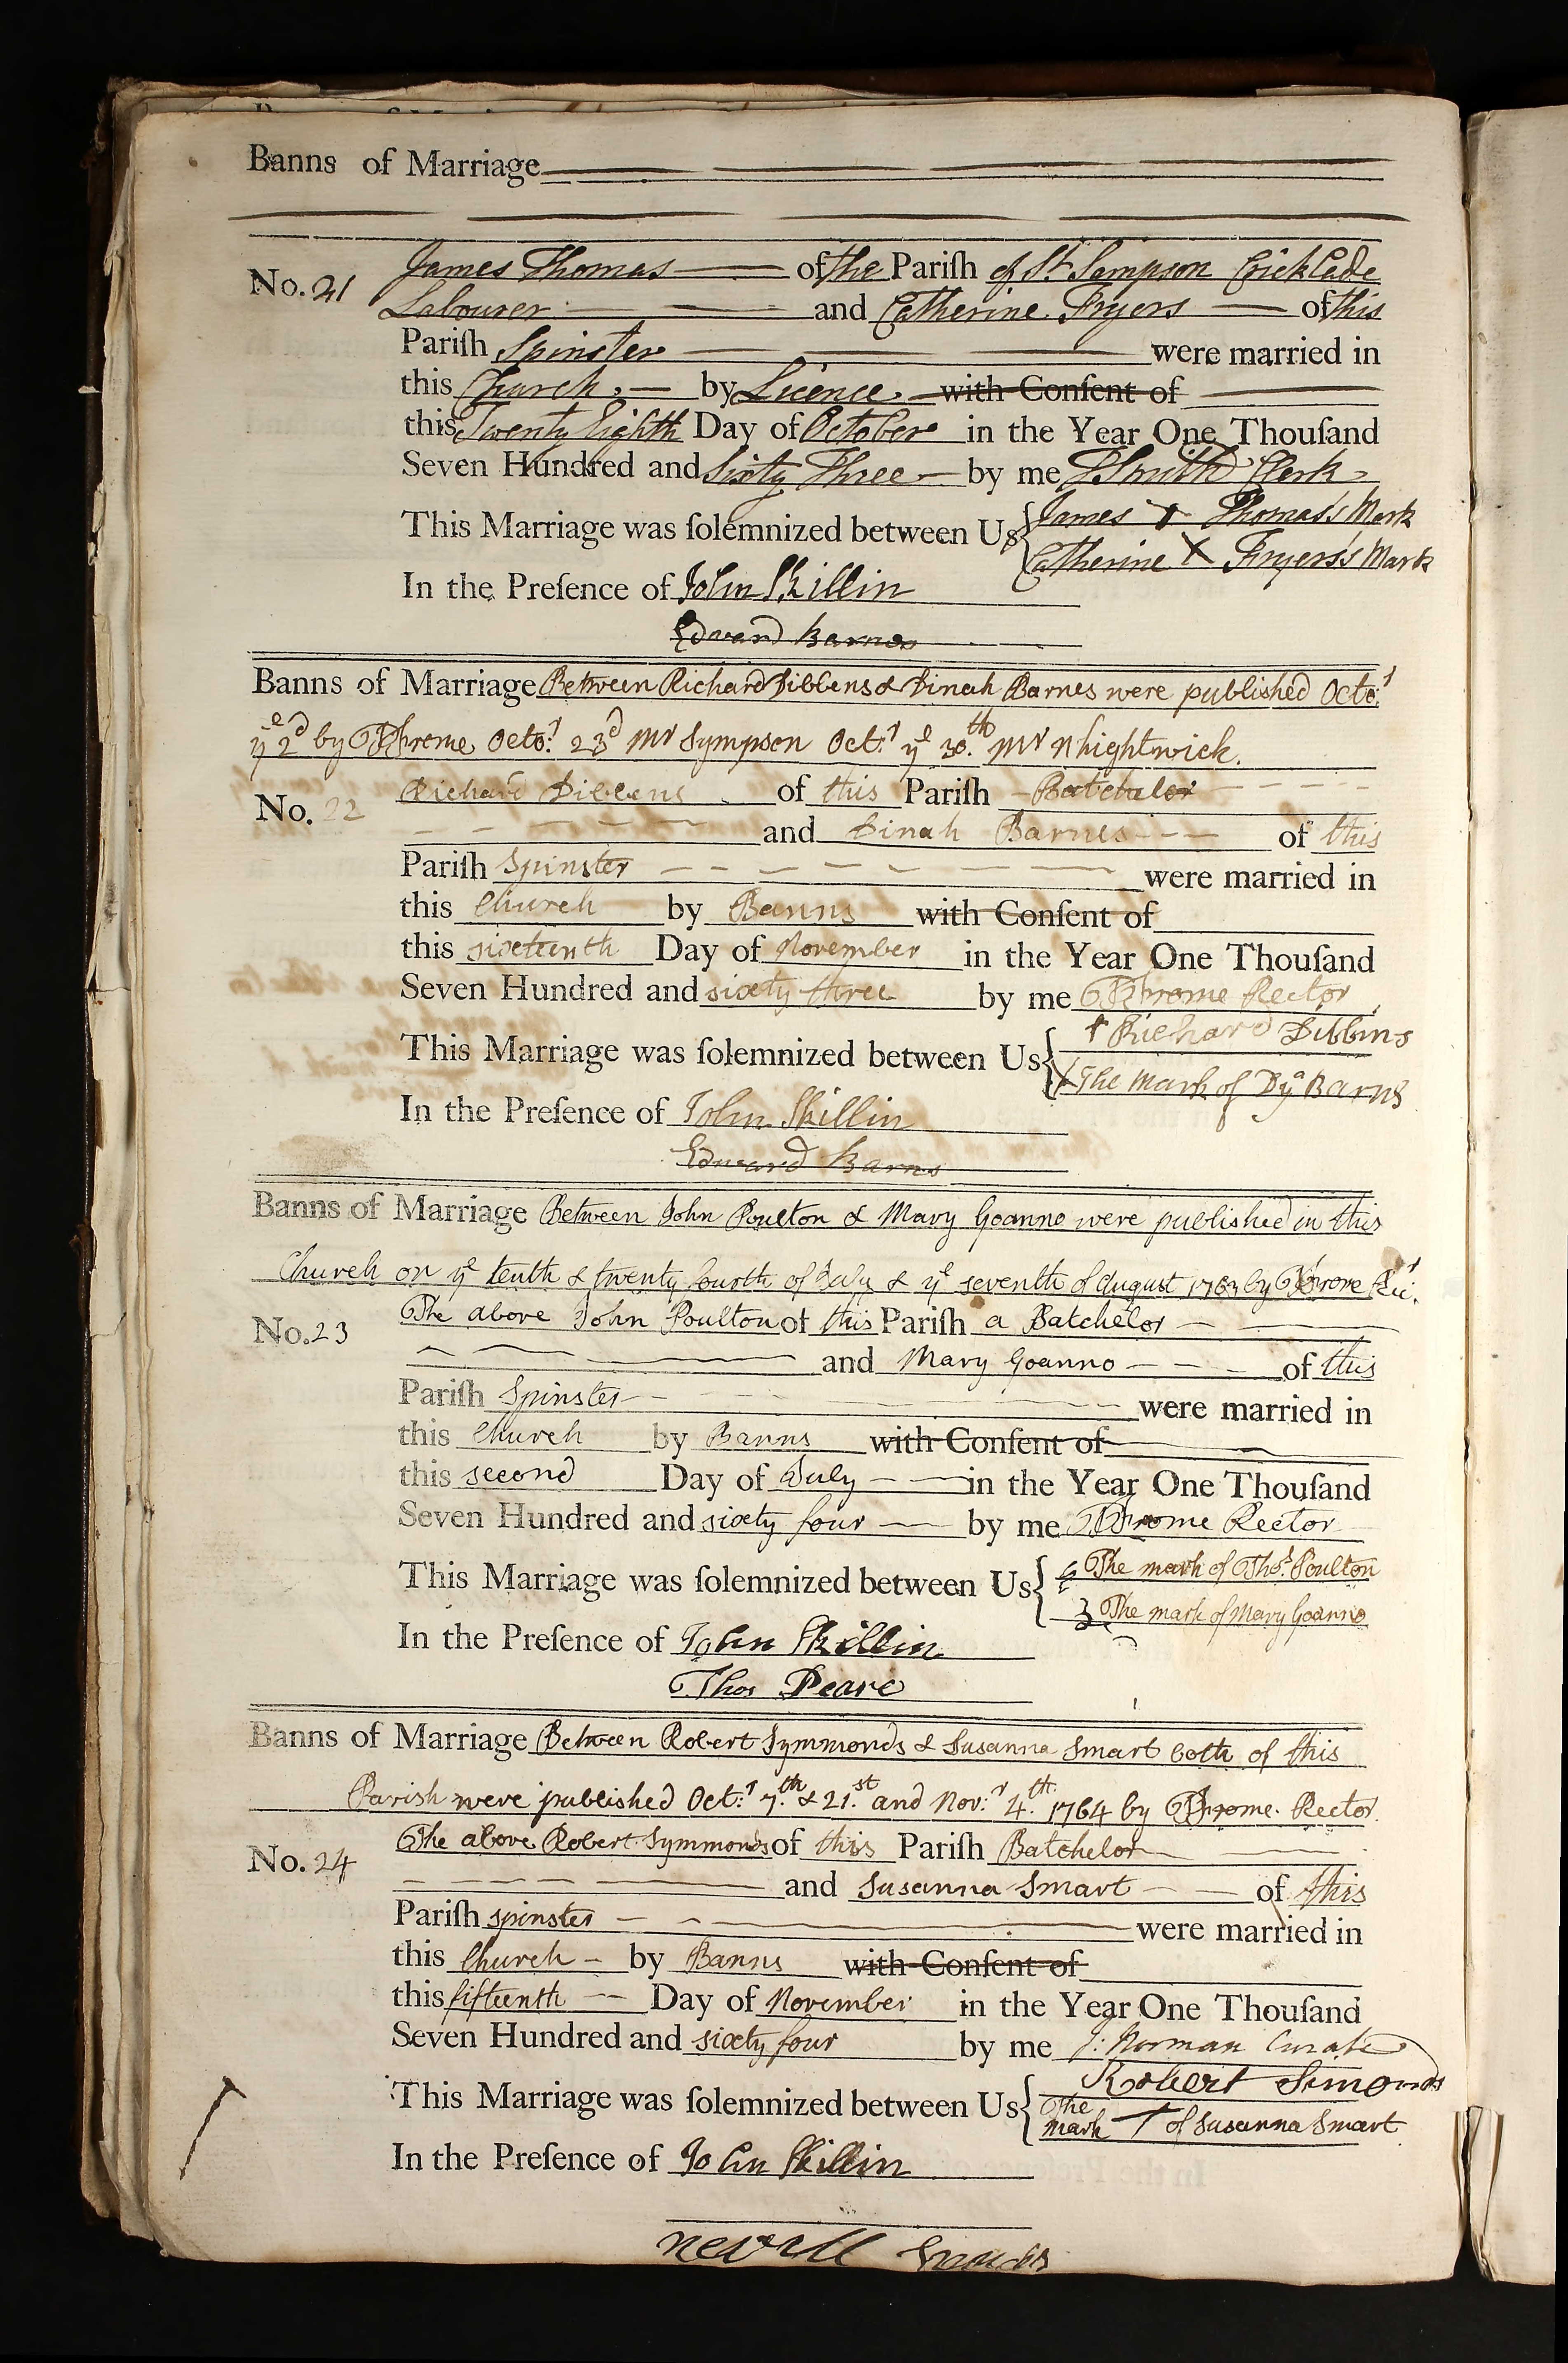 Banns of Marriage
No. 21 James Thomas of the Pariſh of St Sampson Cricklade
Labourer and Catherine Fryers of this
Pariſh Spinster were married in
this Church by Licence with Conſent of
this Twenty Eighth Day of October in the Year One Thouſand
Seven Hundred and Sixty Three by me Smith Clerk
This Marriage was ſolemnized between Us James Thomas's Mark
Catherine X Fryers's Mark
In the Preſence of John Skillin
Edward Barnes
Banns of Marriage Between Richard Dibbens & Dinah Barnes were published Octo:r
ye 2d by Frome Octo:r 23d Mr Sympson Oct:r ye 30.th Mr
No. 22 Richard Dibbens of this Pariſh Batchelor
and Dinah Barnes of this
Pariſh Spinster were married in
this Church by Banns with Conſent of
this sixteenth Day of November in the Year One Thouſand
Seven Hundred and sixty three by me Frome Rector
This Marriage was ſolemnized between Us Richard Dibbins
X The mark of Dy Barns
In the Preſence of John Skillin
Edward Barns
Banns of Marriage Between John Poulton & Mary Goanno were published in this
Church on ye tenth & twenty fourth of July & ye seventh of August 1763 by Frome Rec:r
No. 23 The above John Poulton of this Pariſh a Batchelor
and Mary Goanno of this
Pariſh Spinster were married in
this Church by Banns with Conſent of
this second Day of July in the Year One Thouſand
Seven Hundred and sixty four by me Frome Rector
This Marriage was ſolemnized between Us The mark of Thos. Poulton
The mark of Mary Goanno
In the Preſence of John Skillin
Thos Peare
Banns of Marriage Between Robert Symmonds & Susanna Smart both of this
Parish were published Oct:r 7.th & 21.st and Nov:r 4.th 1764 by Frome Rector
No. 24 The above Robert Symmonds of this Pariſh Batchelor
and Susanna Smart of this
Pariſh spinster were married in
this Church by Banns with Conſent of
this fifteenth Day of November in the Year One Thouſand
Seven Hundred and sixty four by me J: Norman Curate
This Marriage was ſolemnized between Us Robert Simonds
The mark of Susanna Smart
In the Preſence of John Skillin
nevill